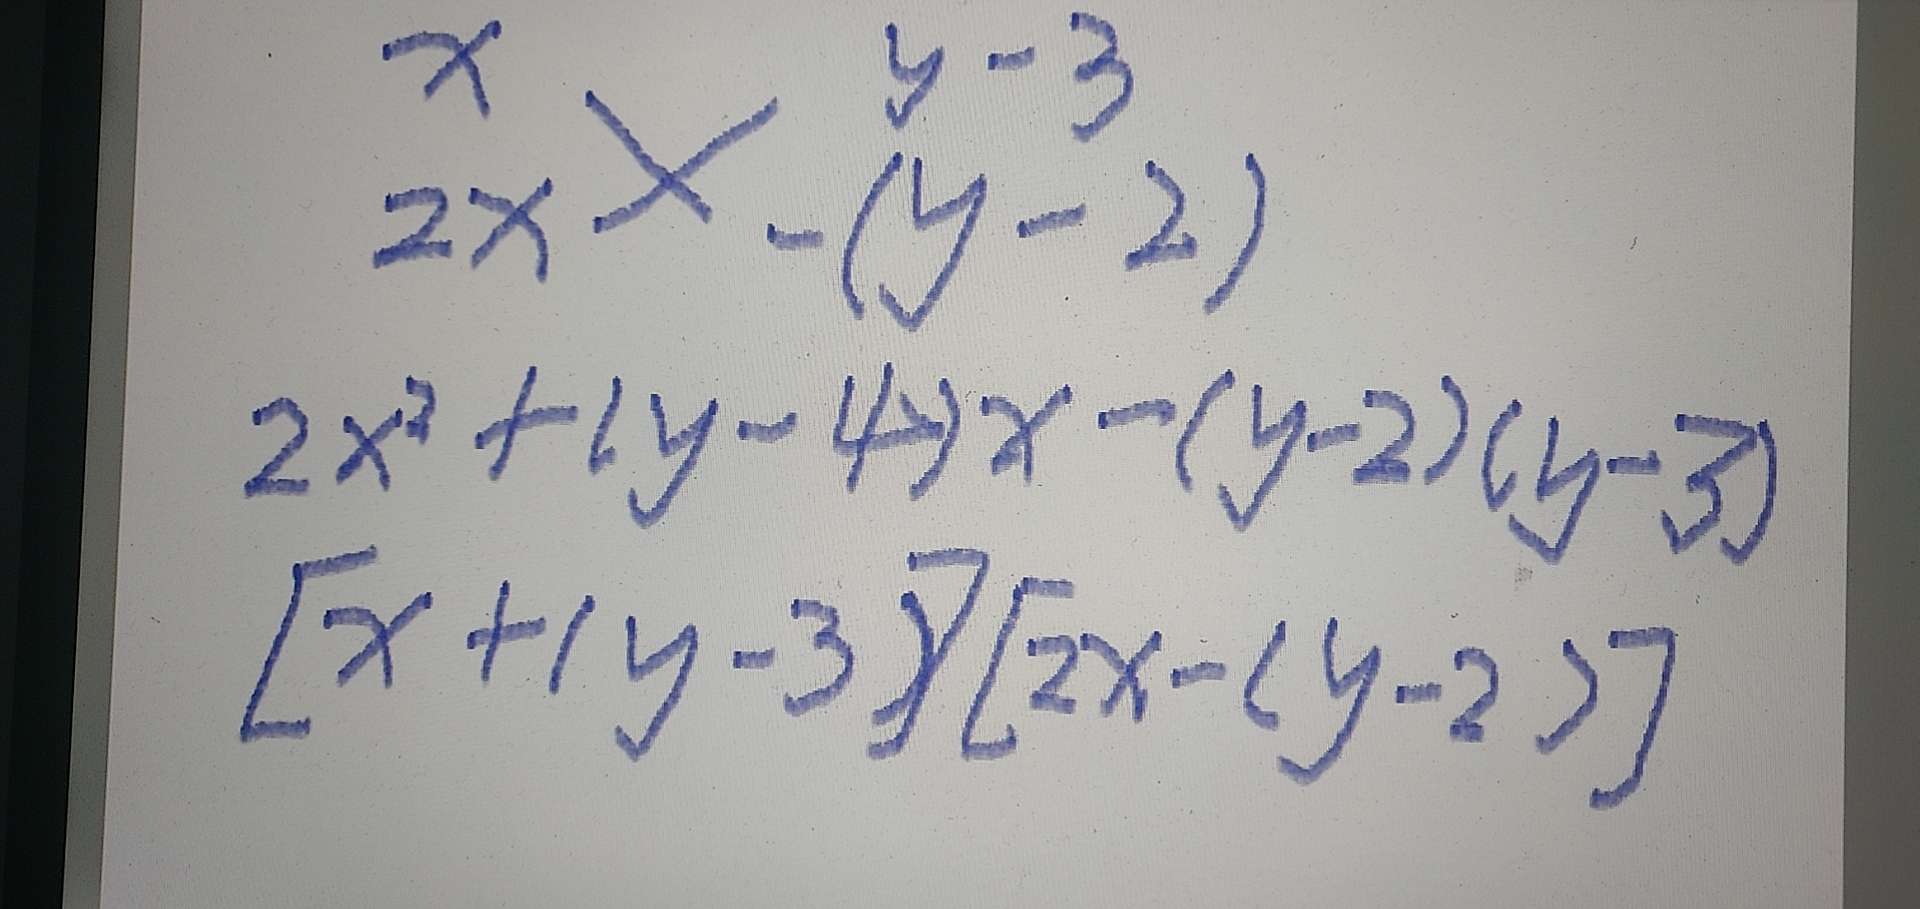 x y-3
2x -(y-2)
2x²+(y-4)x-(y-2)(y-3)
[x+(y-3)][2x-(y-2)]